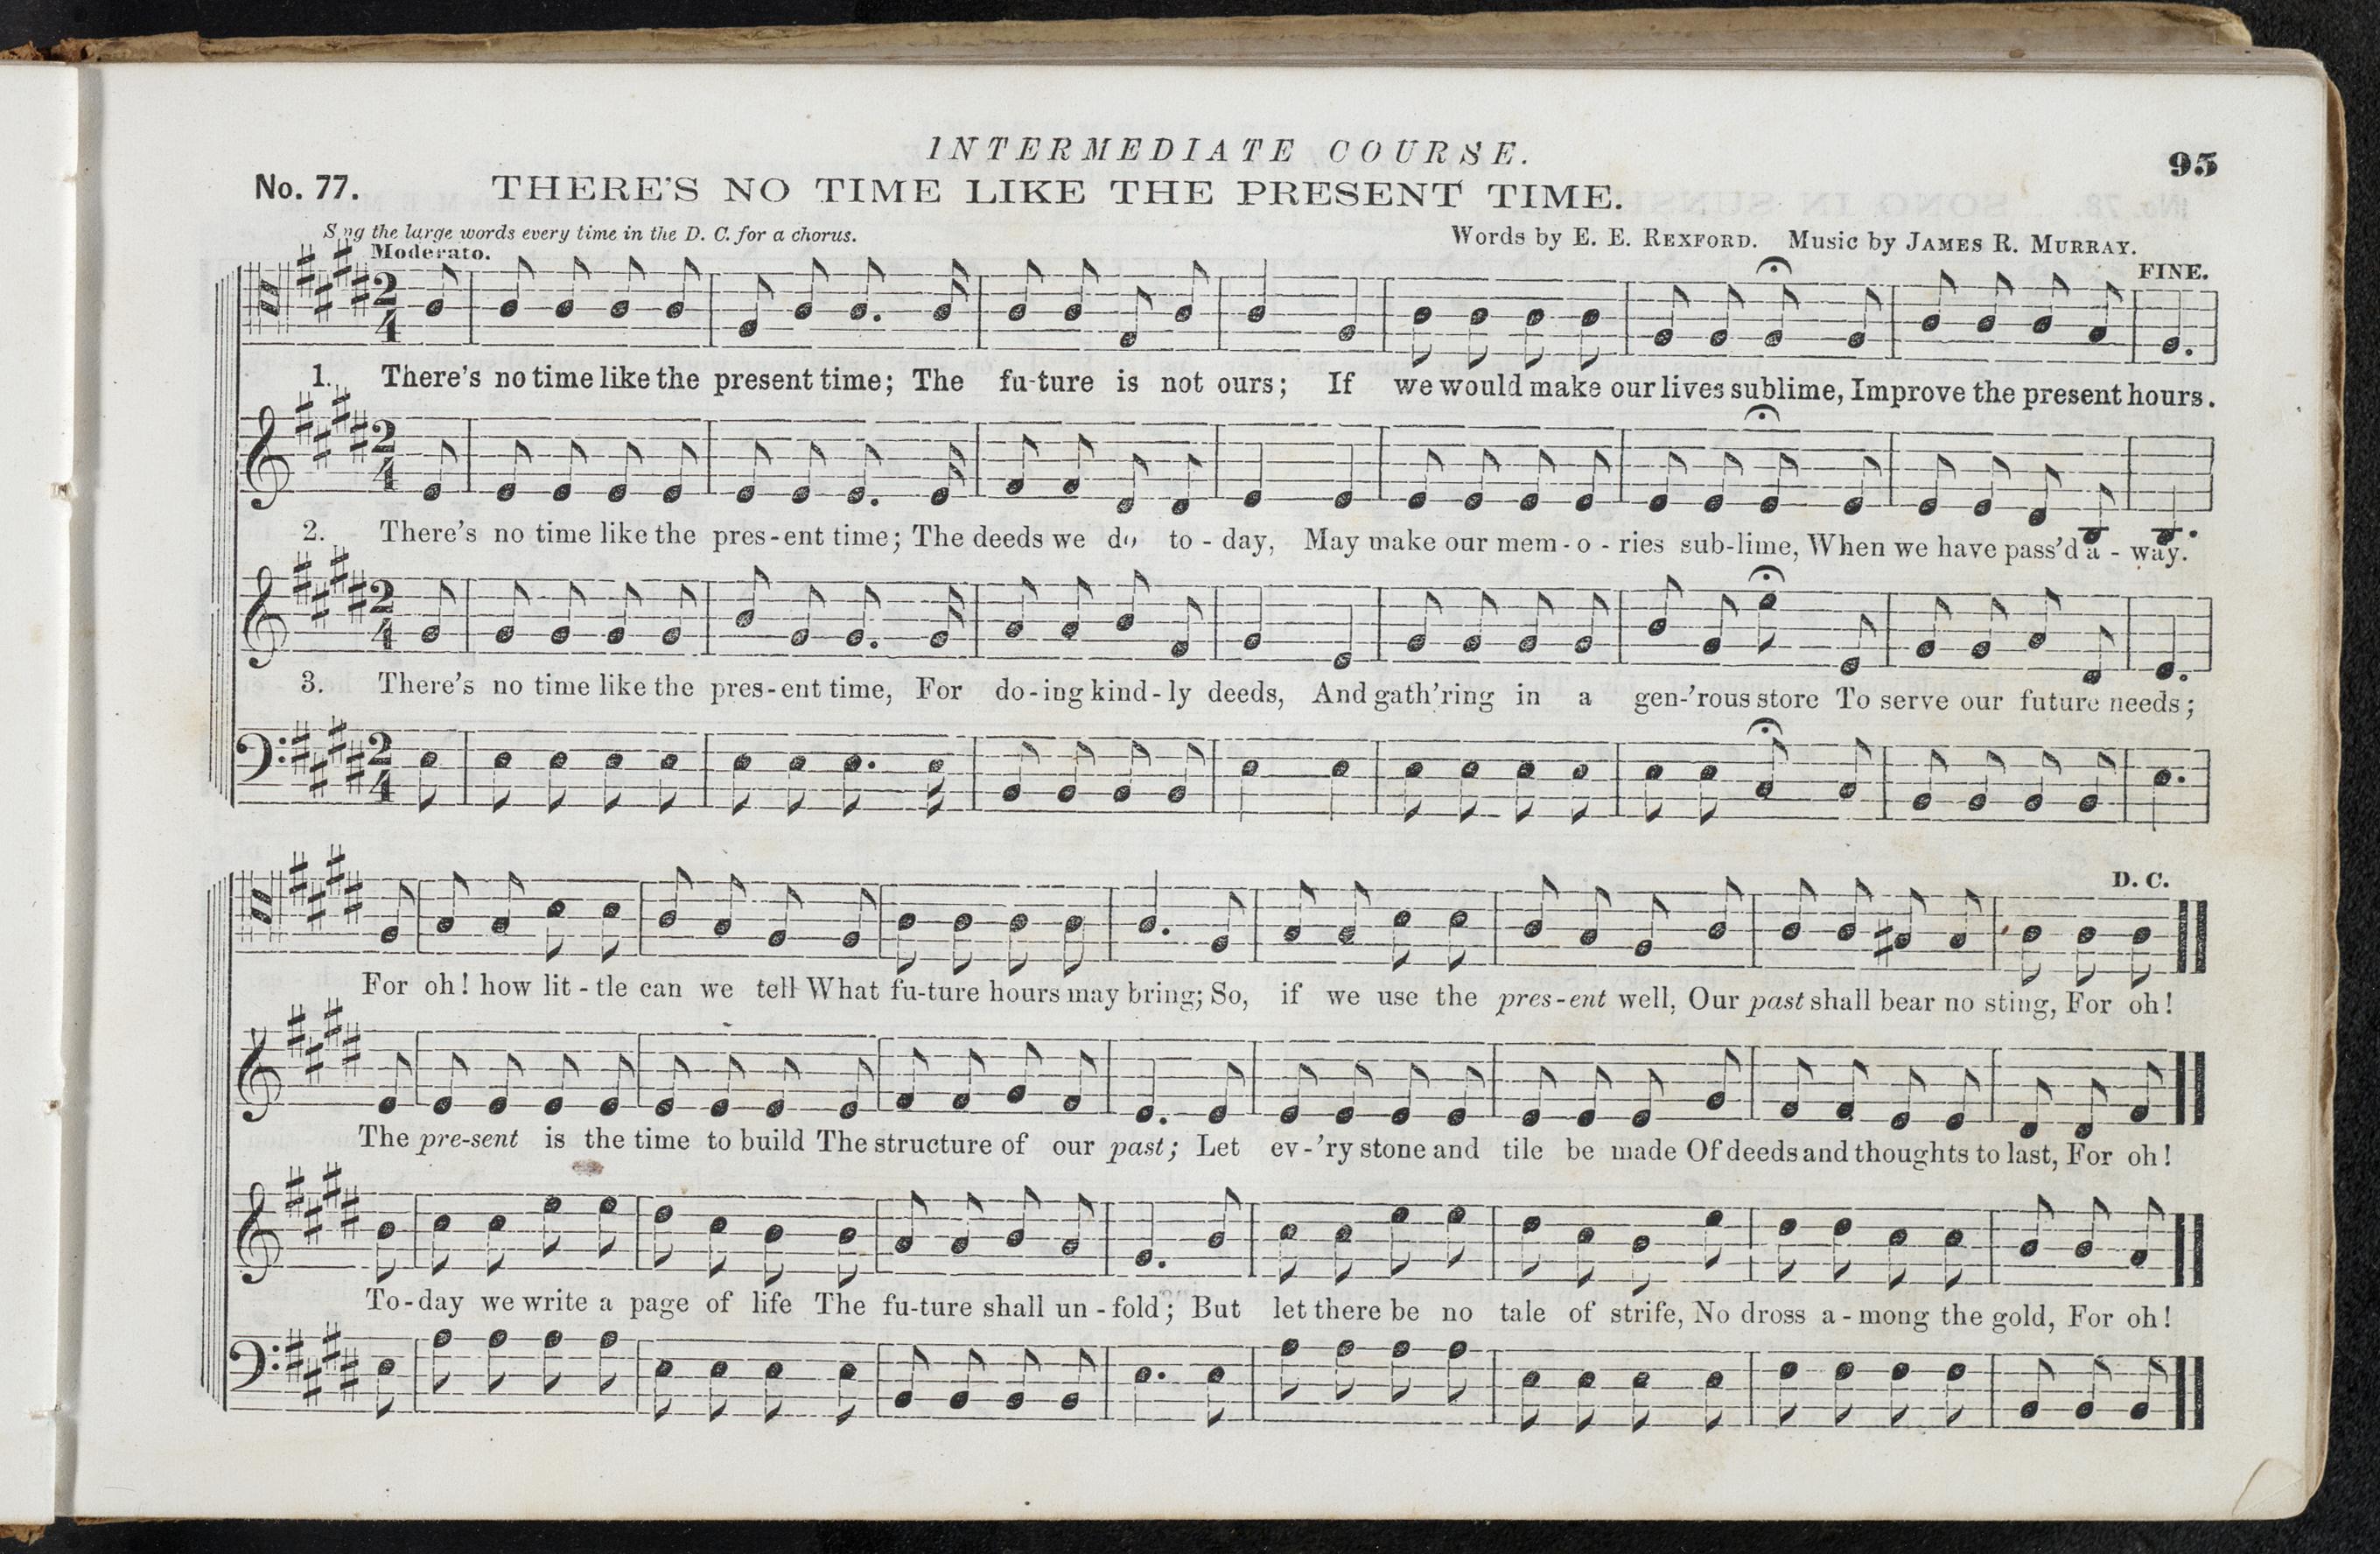 INTERMEDIATE COURSE.
95
No. 77.
THERE'S NO TIME LIKE THE PRESENT TIME.
Sing the large words every time in the D. C. for a chorus.
Words by E. E. REXFORD. Music by JAMES R. MURRAY.
Moderato.
FINE.
2/4
1. There's no time like the present time; The fu-ture is not ours; If we would make our lives sublime, Improve the present hours.
2/4
2. There's no time like the pres-ent time; The deeds we do to-day, May make our mem-o-ries sub-lime, When we have pass'd a-way.
2/4
3. There's no time like the pres-ent time, For do-ing kind-ly deeds, And gath'ring in a gen-'rous store To serve our future needs;
2/4
D. C.
For oh! how lit-tle can we tell What fu-ture hours may bring; So, if we use the pres-ent well, Our past shall bear no sting, For oh!
The pre-sent is the time to build The structure of our past; Let ev-'ry stone and tile be made Of deeds and thoughts to last, For oh!
To-day we write a page of life The fu-ture shall un-fold; But let there be no tale of strife, No dross a-mong the gold, For oh!